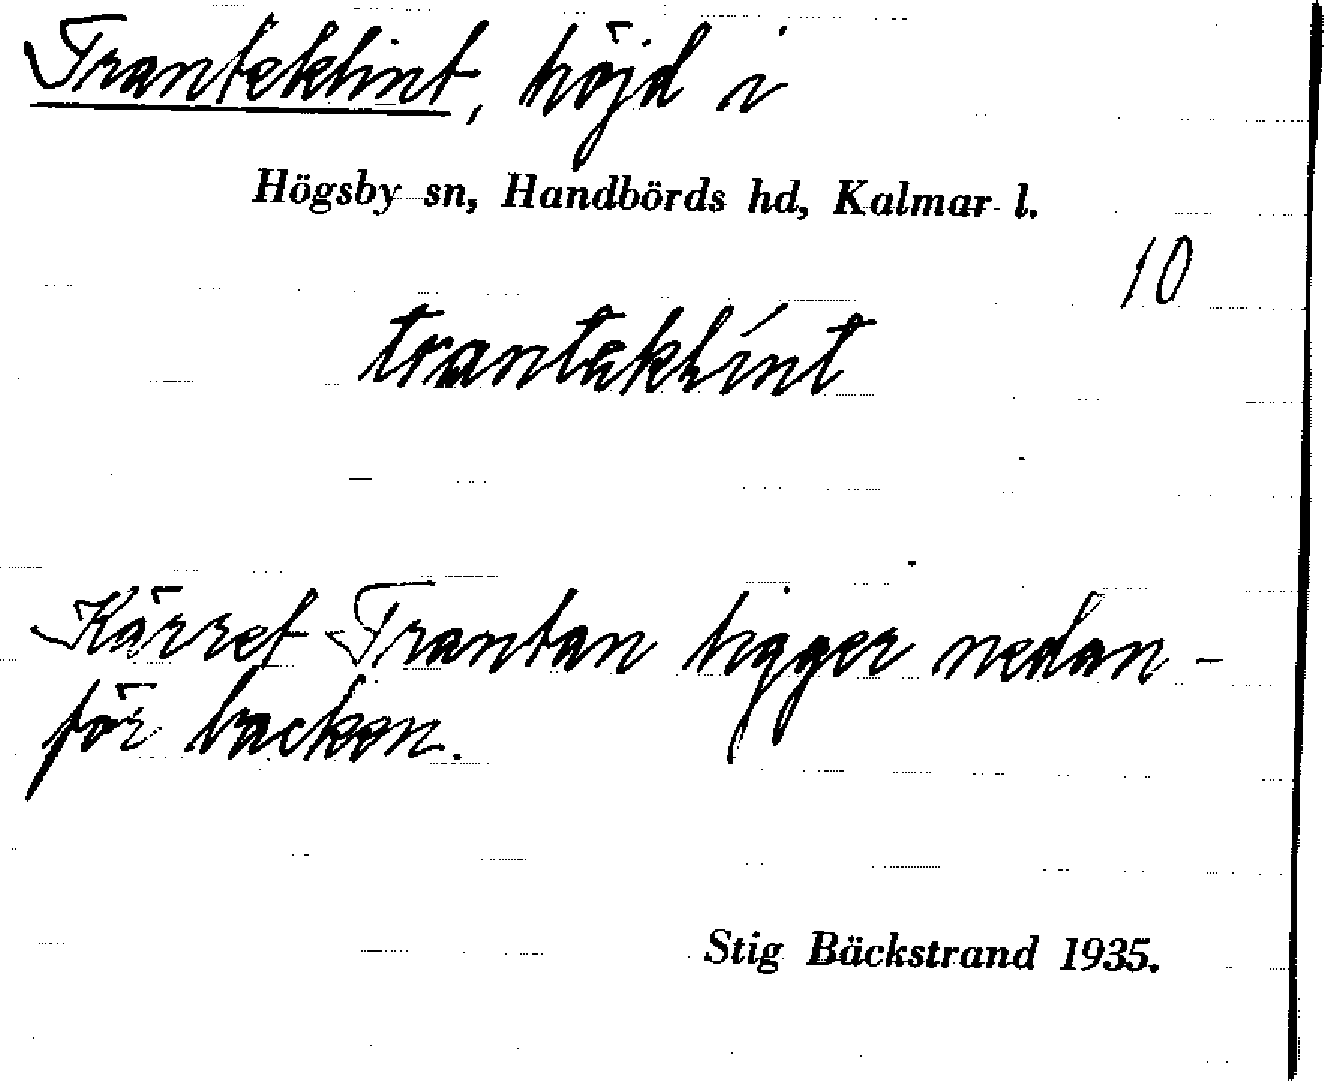 Tranteklint, höjd i
Högsby sn, Handbörds hd, Kalmar l.
10
tranteklint
Kärret Trantan ligger nedan-
för backen.
Stig Bäckstrand 1935.